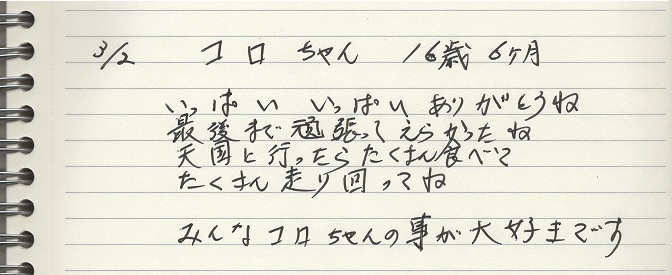 3/2 コロちゃん 16歳6ヶ月
いっぱいいっぱいありがとうね
最後まで頑張ってえらかったね
天国に行ったらたくさん食べて
たくさん走り回ってね
みんなコロちゃんの事が大好きです